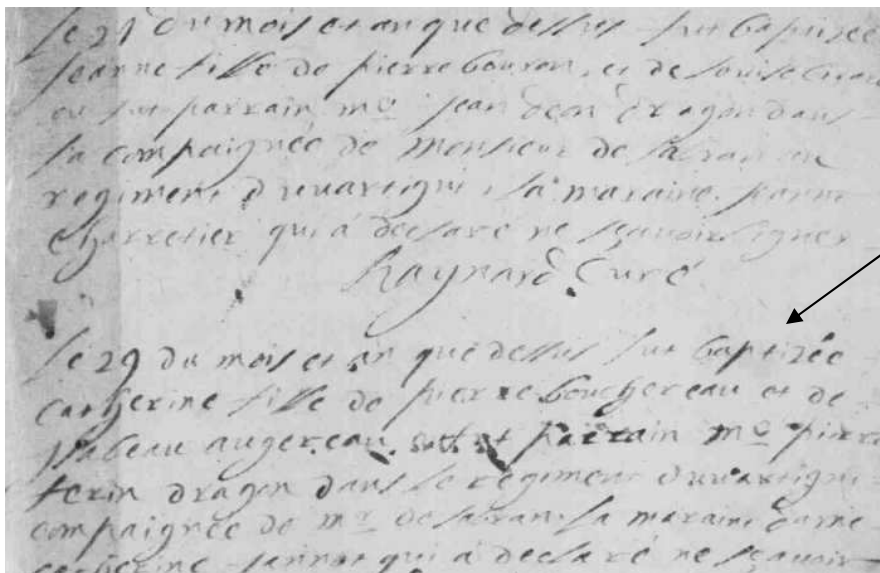 le 21 du mois et an que dessus fut baptizée
Jeanne fille de pierre bouron, et de louise
ou fut parrain mᵉ jean dragon dans
la compaignée de Monsieur de
regiment la maraine. jeanne
charretier qui á declaré ne sçavoir signer
Raynard Curé
le 29 du mois et an que dessus fut baptizée
catherine fille de pierre bouchereau et de
Isabeau augereau parrain mᵉ pierre
dragon dans le regiment
compaignée de mʳ de la maraine
catherine qui á declaré ne sçavoir